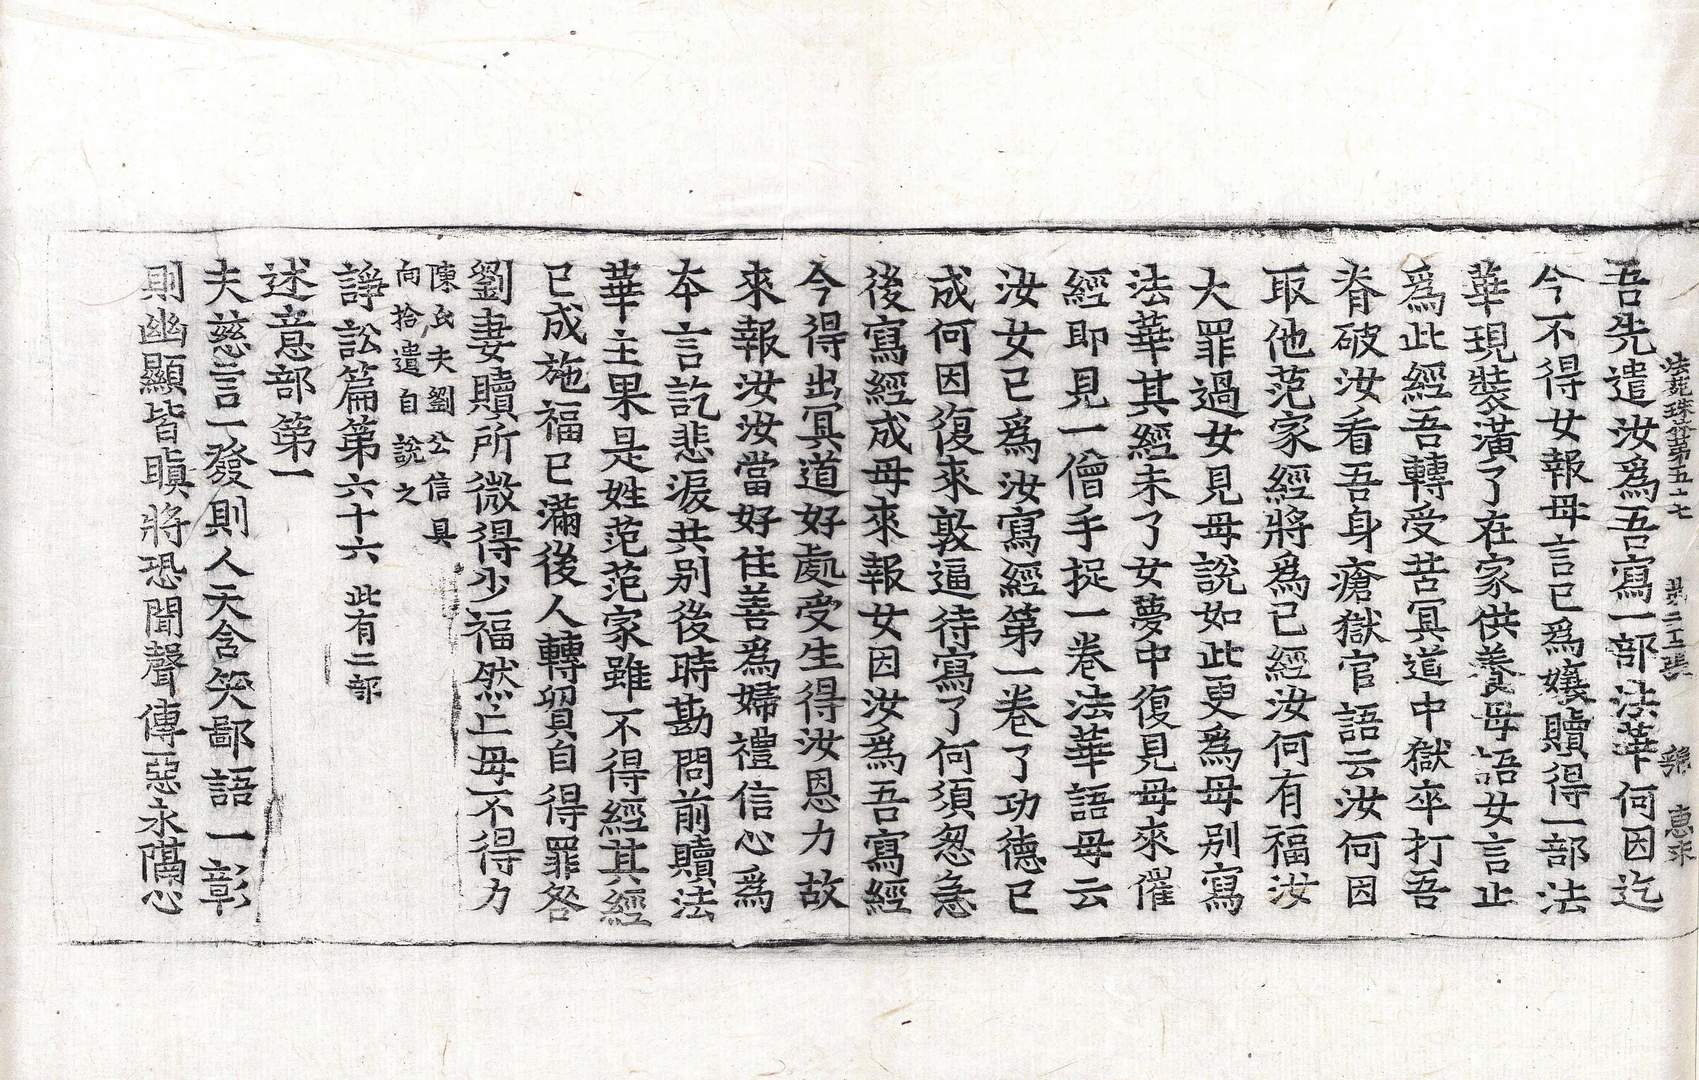 法苑珠林第五十七 第二十張 雞 惠來
吾先遣汝爲吾寫一部法華何因迄
今不得女報母言已爲孃贖得一部法
華現裝潢了在家供養母語女言止
爲此經吾轉受苦冥道中獄卒打吾
脊破汝看吾身瘡獄官語云汝何因
取他范家經將爲己經汝何有福汝
大罪過女見母說如此更爲母別寫
法華其經未了女夢中復見母來催
經即見一僧手捉一卷法華語母云
汝女已爲汝寫經第一卷了功德已
成何因復來敦逼待寫了何須怱急
後寫經成母來報女因汝爲吾寫經
今得出冥道好處受生得汝恩力故
來報汝汝當好住善爲婦禮信心爲
本言訖悲淚共別後時勘問前贖法
華主果是姓范范家雖不得經其經
已成施福已滿後人轉貿自得罪咎
劉妻贖所微得少福然亡母不得力
陳氏夫劉公信具
向拾遺自說之
諍訟篇第六十六 此有二部
述意部第一
夫慈言一發則人天含笑鄙語一彰
則幽顯皆瞋將恐聞聲傳惡永隔心